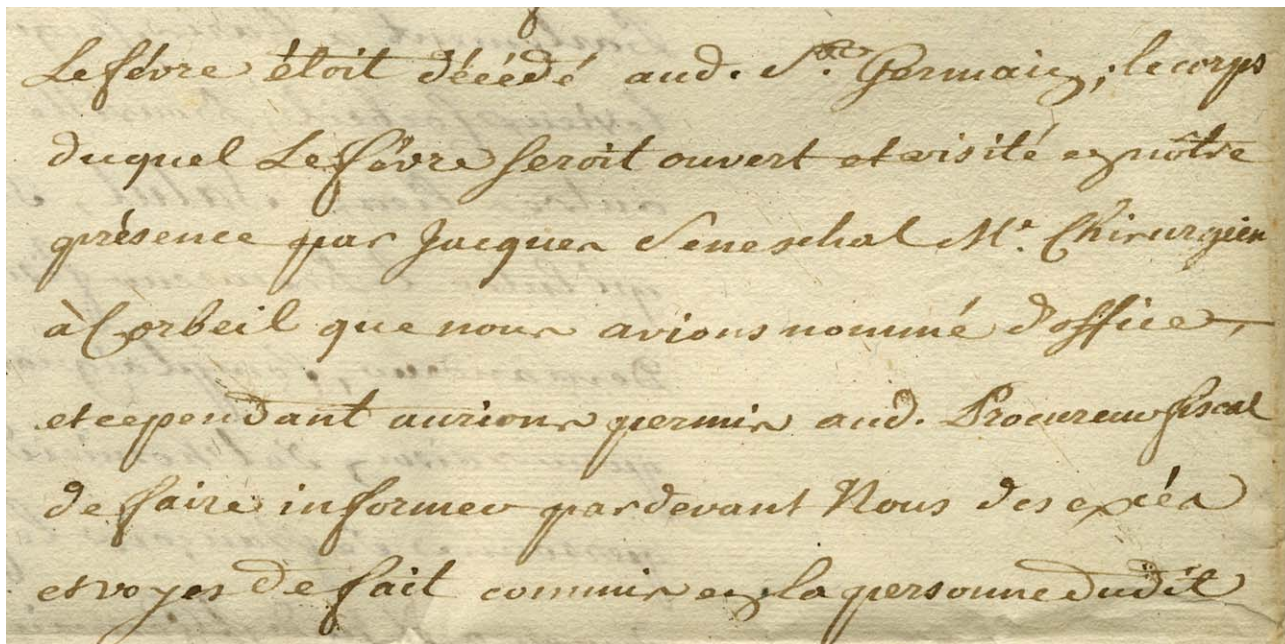 Lefévre étoit décédé aud. St. Germain; le corps
duquel Lefévre seroit ouvert et visité en nôtre
présence par Jacques Seneschal Me. Chirurgien
à Corbeil que nous avions nommé d'office,
et cependant aurions permis aud. Procureur fiscal
de faire informer pardevant Nous des excés
et voyes de fait commis en la personne dudit